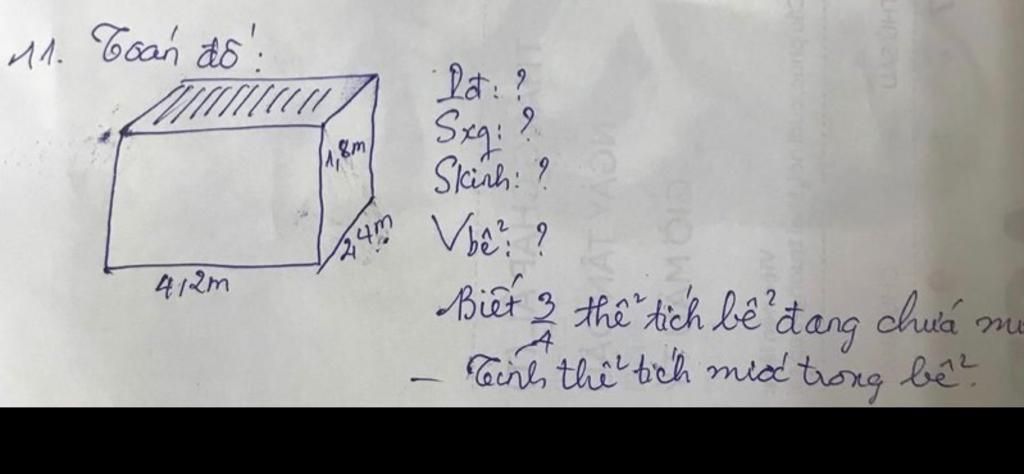 11. Toán đố:
Pđ: ?
Sxq: ?
Skính: ?
Vbể: ?
1,8m
2,4m
4,2m
Biết 3/4 thể tích bể đang chứa
- Tính thể tích nước trong bể.